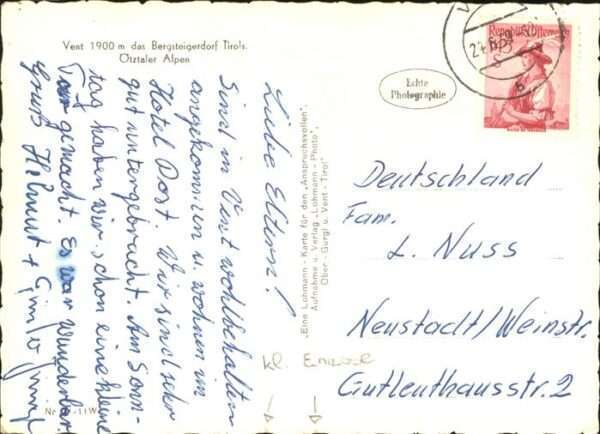 Vent 1900 m das Bergsteigerdorf Tirols
Ötztaler Alpen
Liebe Eltern!
Sind in Vent wohlbehalten
angekommen u. wohnen im
Hotel Post. Wir sind sehr
gut untergebracht. Am Sonn-
tag haben wir schon eine kleine
Tour gemacht. Es war wunderbar.
Gruß Helmut +
"Eine Lohmann-Karte für den Anspruchsvollen".
Aufnahme u. Verlag "Lohmann-Photo",
Ober-Gurgl u. Vent-Tirol
Echte
Photographie
Republik Österreich
Deutschland
Fam.
L. Nuss
Neustadt/Weinstr.
Gutleuthausstr. 2
kl.